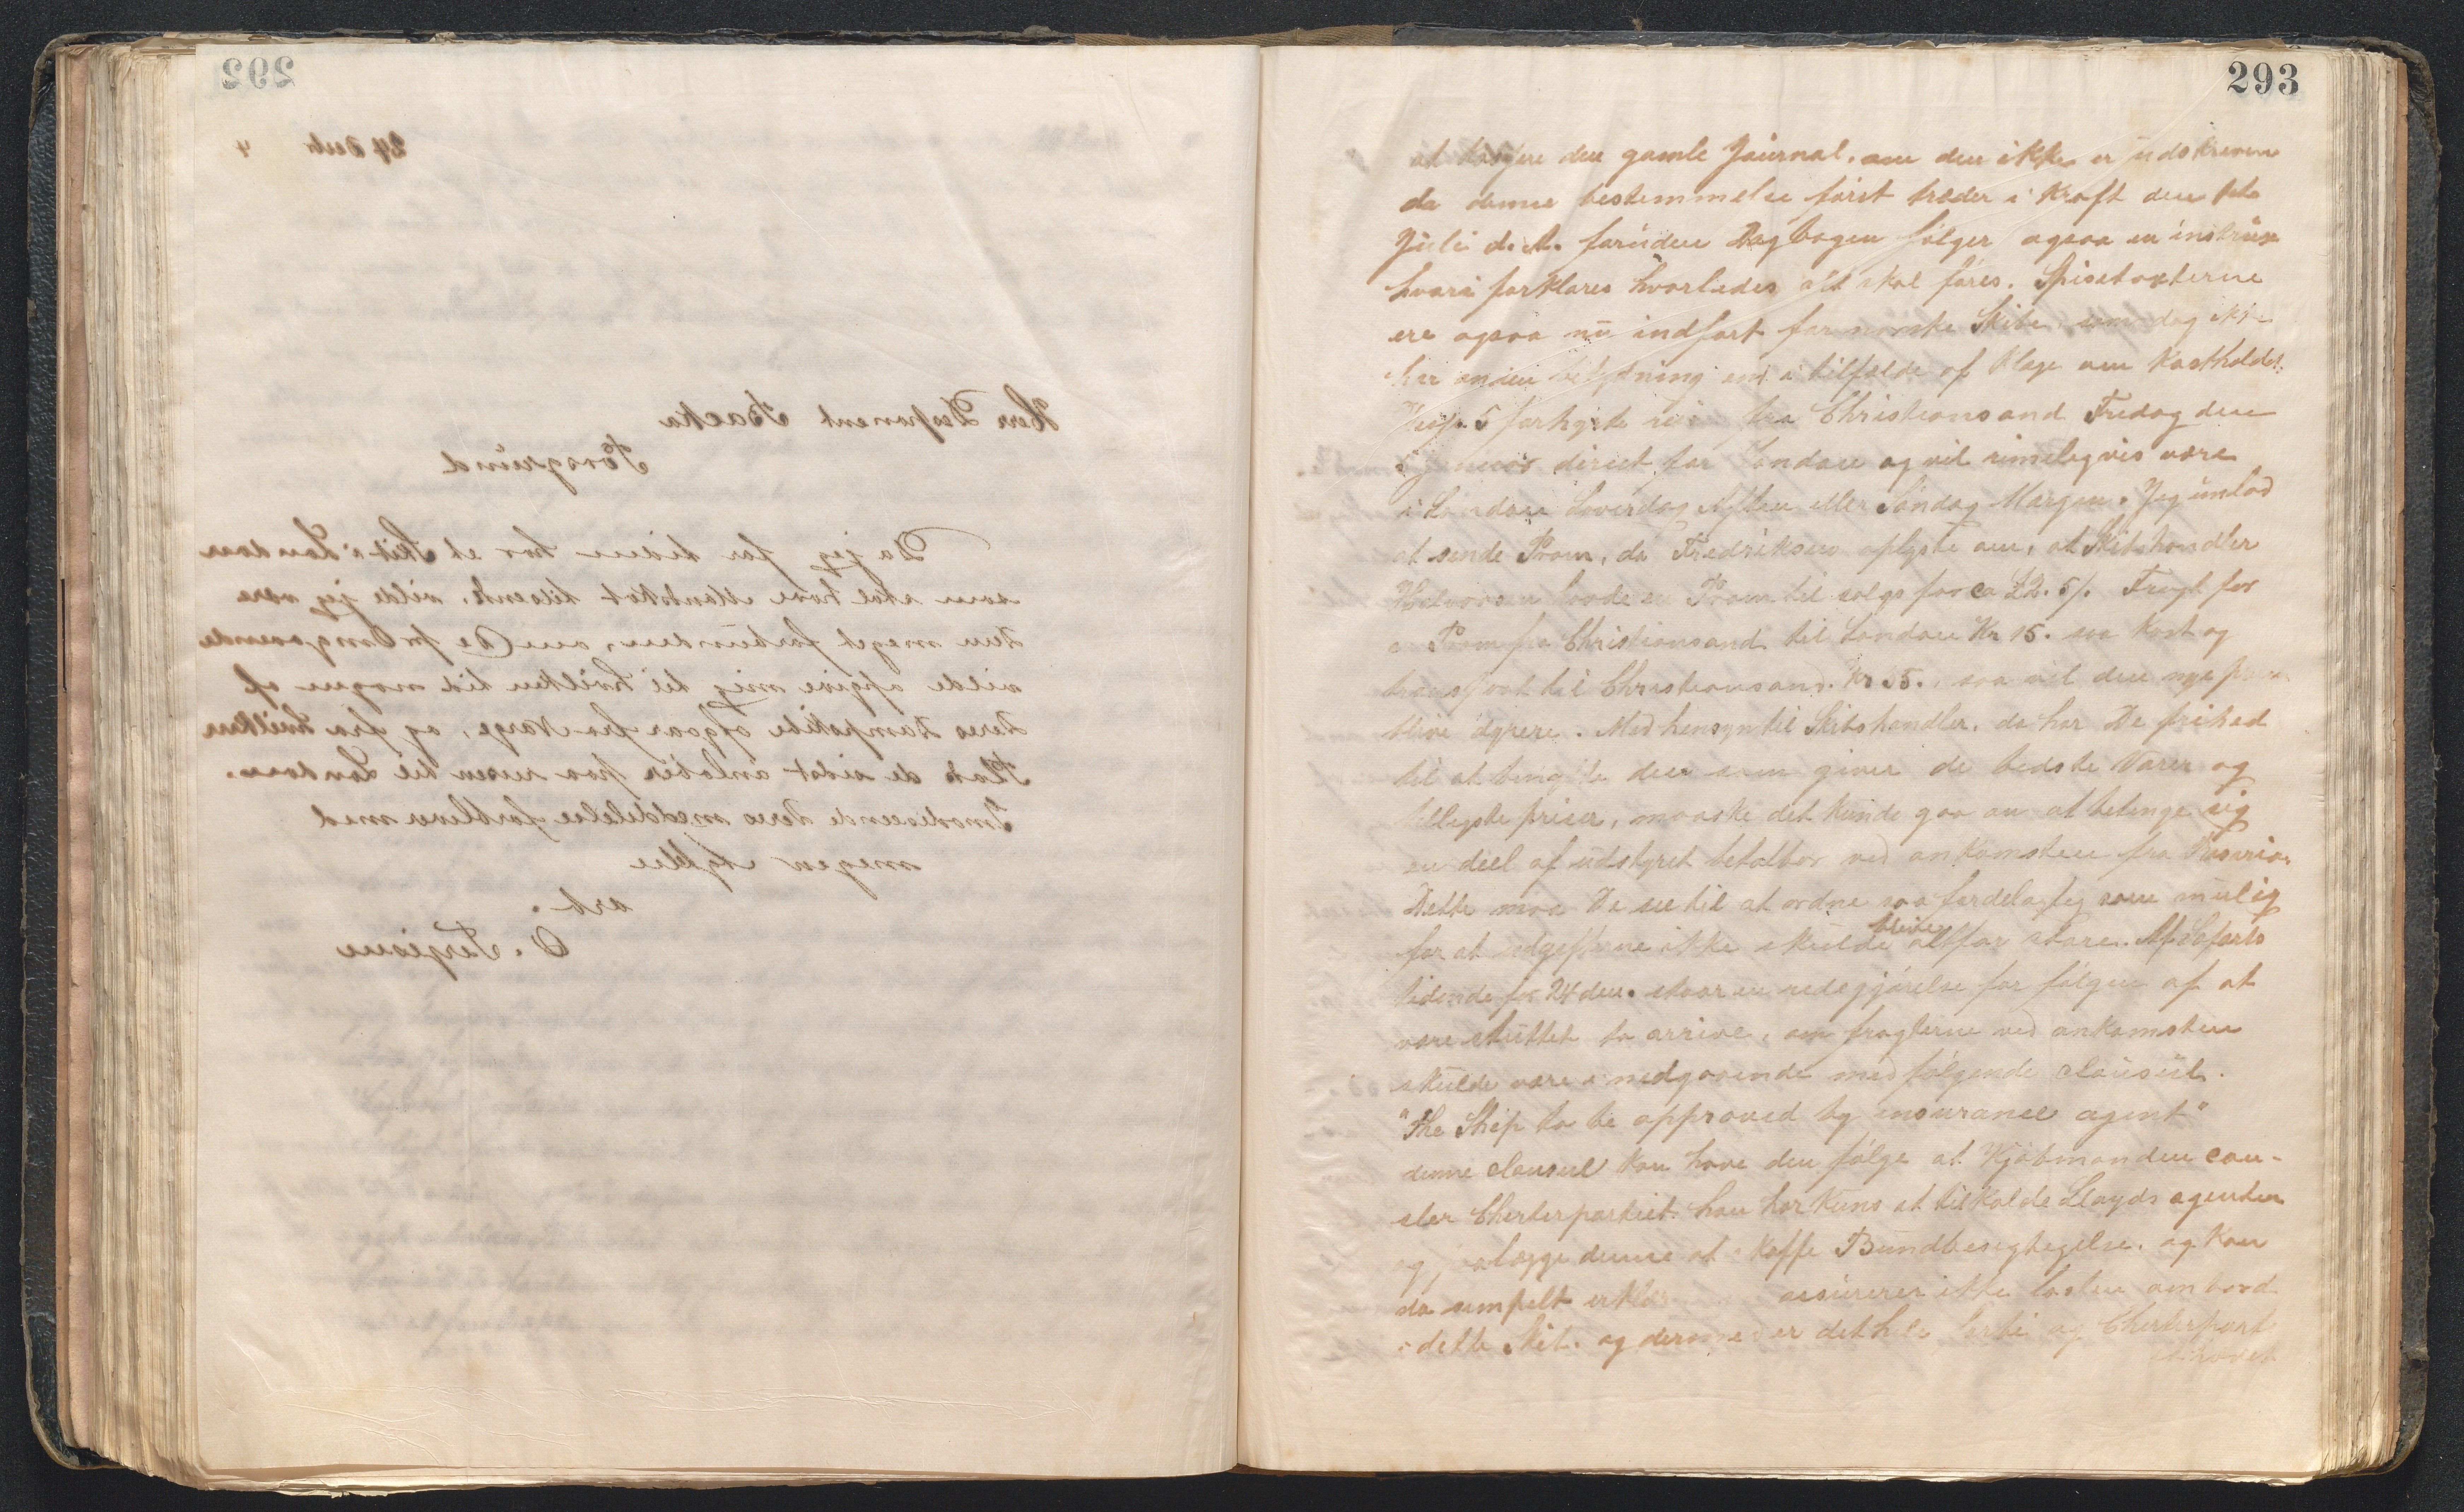 292
24 Decbr 4
Herr Disponent Backa
Porsgrund
Da jeg for tiden har et Skib i London
som skal have Mandskab tilsendt, vilde jeg være
Dem meget forbunden, om De pr Omgaaende
vilde opgive mig til hvilken tid nogen af
Deres Dampskibe afgaar fra Norge, og fra hvilken
Plads de sidst anløber paa reisen til London.
Imødeseende Deres meddelelse forbliver med
megen Agtelse
arb.
O. Terjesen
293
at den gamle Journal, om den ikke er udskreven
da denne bestemmelse først træder i Kraft den 1ste
Juli d. A. foruden Dagbogen følger ogsaa en instrux
hvori forklares hvorledes alt skal føres. Spisetaxterne
ere ogsaa nu indført for norske Skibe, som dog ikke
har anden betydning end i tilfælde af Klage over Kostholdet.
5 forhyrte fra Christiansand Fredag den
direct for London og vil rimeligvis være
i London Löverdag Aften eller Søndag Morgen. Jeg unlod
at sende Pram, da Fredriksen oplyste om, at Skibshandler
Halvorsen havde en Pram til salgs for ca £2. 5/. Fragt for
en Pram fra Christiansand til London Kr 15. saa Kost og
transport til Christiansand. Kr 35. saa vil den nye pram
blive dyrere. Med hensyn til Skibshandler, da har De frihed
til at benytte den som giver de bedste Varer og
billigste priser, maaske det kunde gaa an at betinge sig
en deel af udstyret betalbar ved ankomsten fra
Dette maa De see til at ordne saa fordelagtig som mulig
for at udgifterne ikke skulde blive altfor store. Af Søfarts
tidende for 24 den. staar en redegjørelse for følgen af at
være sluttet to arrive, om fragterne ved ankomsten
skulde være i nedgaaende med følgende clausul.
"The Ship to be approved by insurance agent"
denne clausul kan have den følge at Kjøbmanden can-
sler Cherterpartiet. han har kuns at tilkalde Lloyds agenten
og paalægge denne at skaffe Bundbesigtigelse. og kan
da simpelt erklær assurerer ikke lasten ombord
i dette Skib. og dermed er det hele forbi og Cherterpart